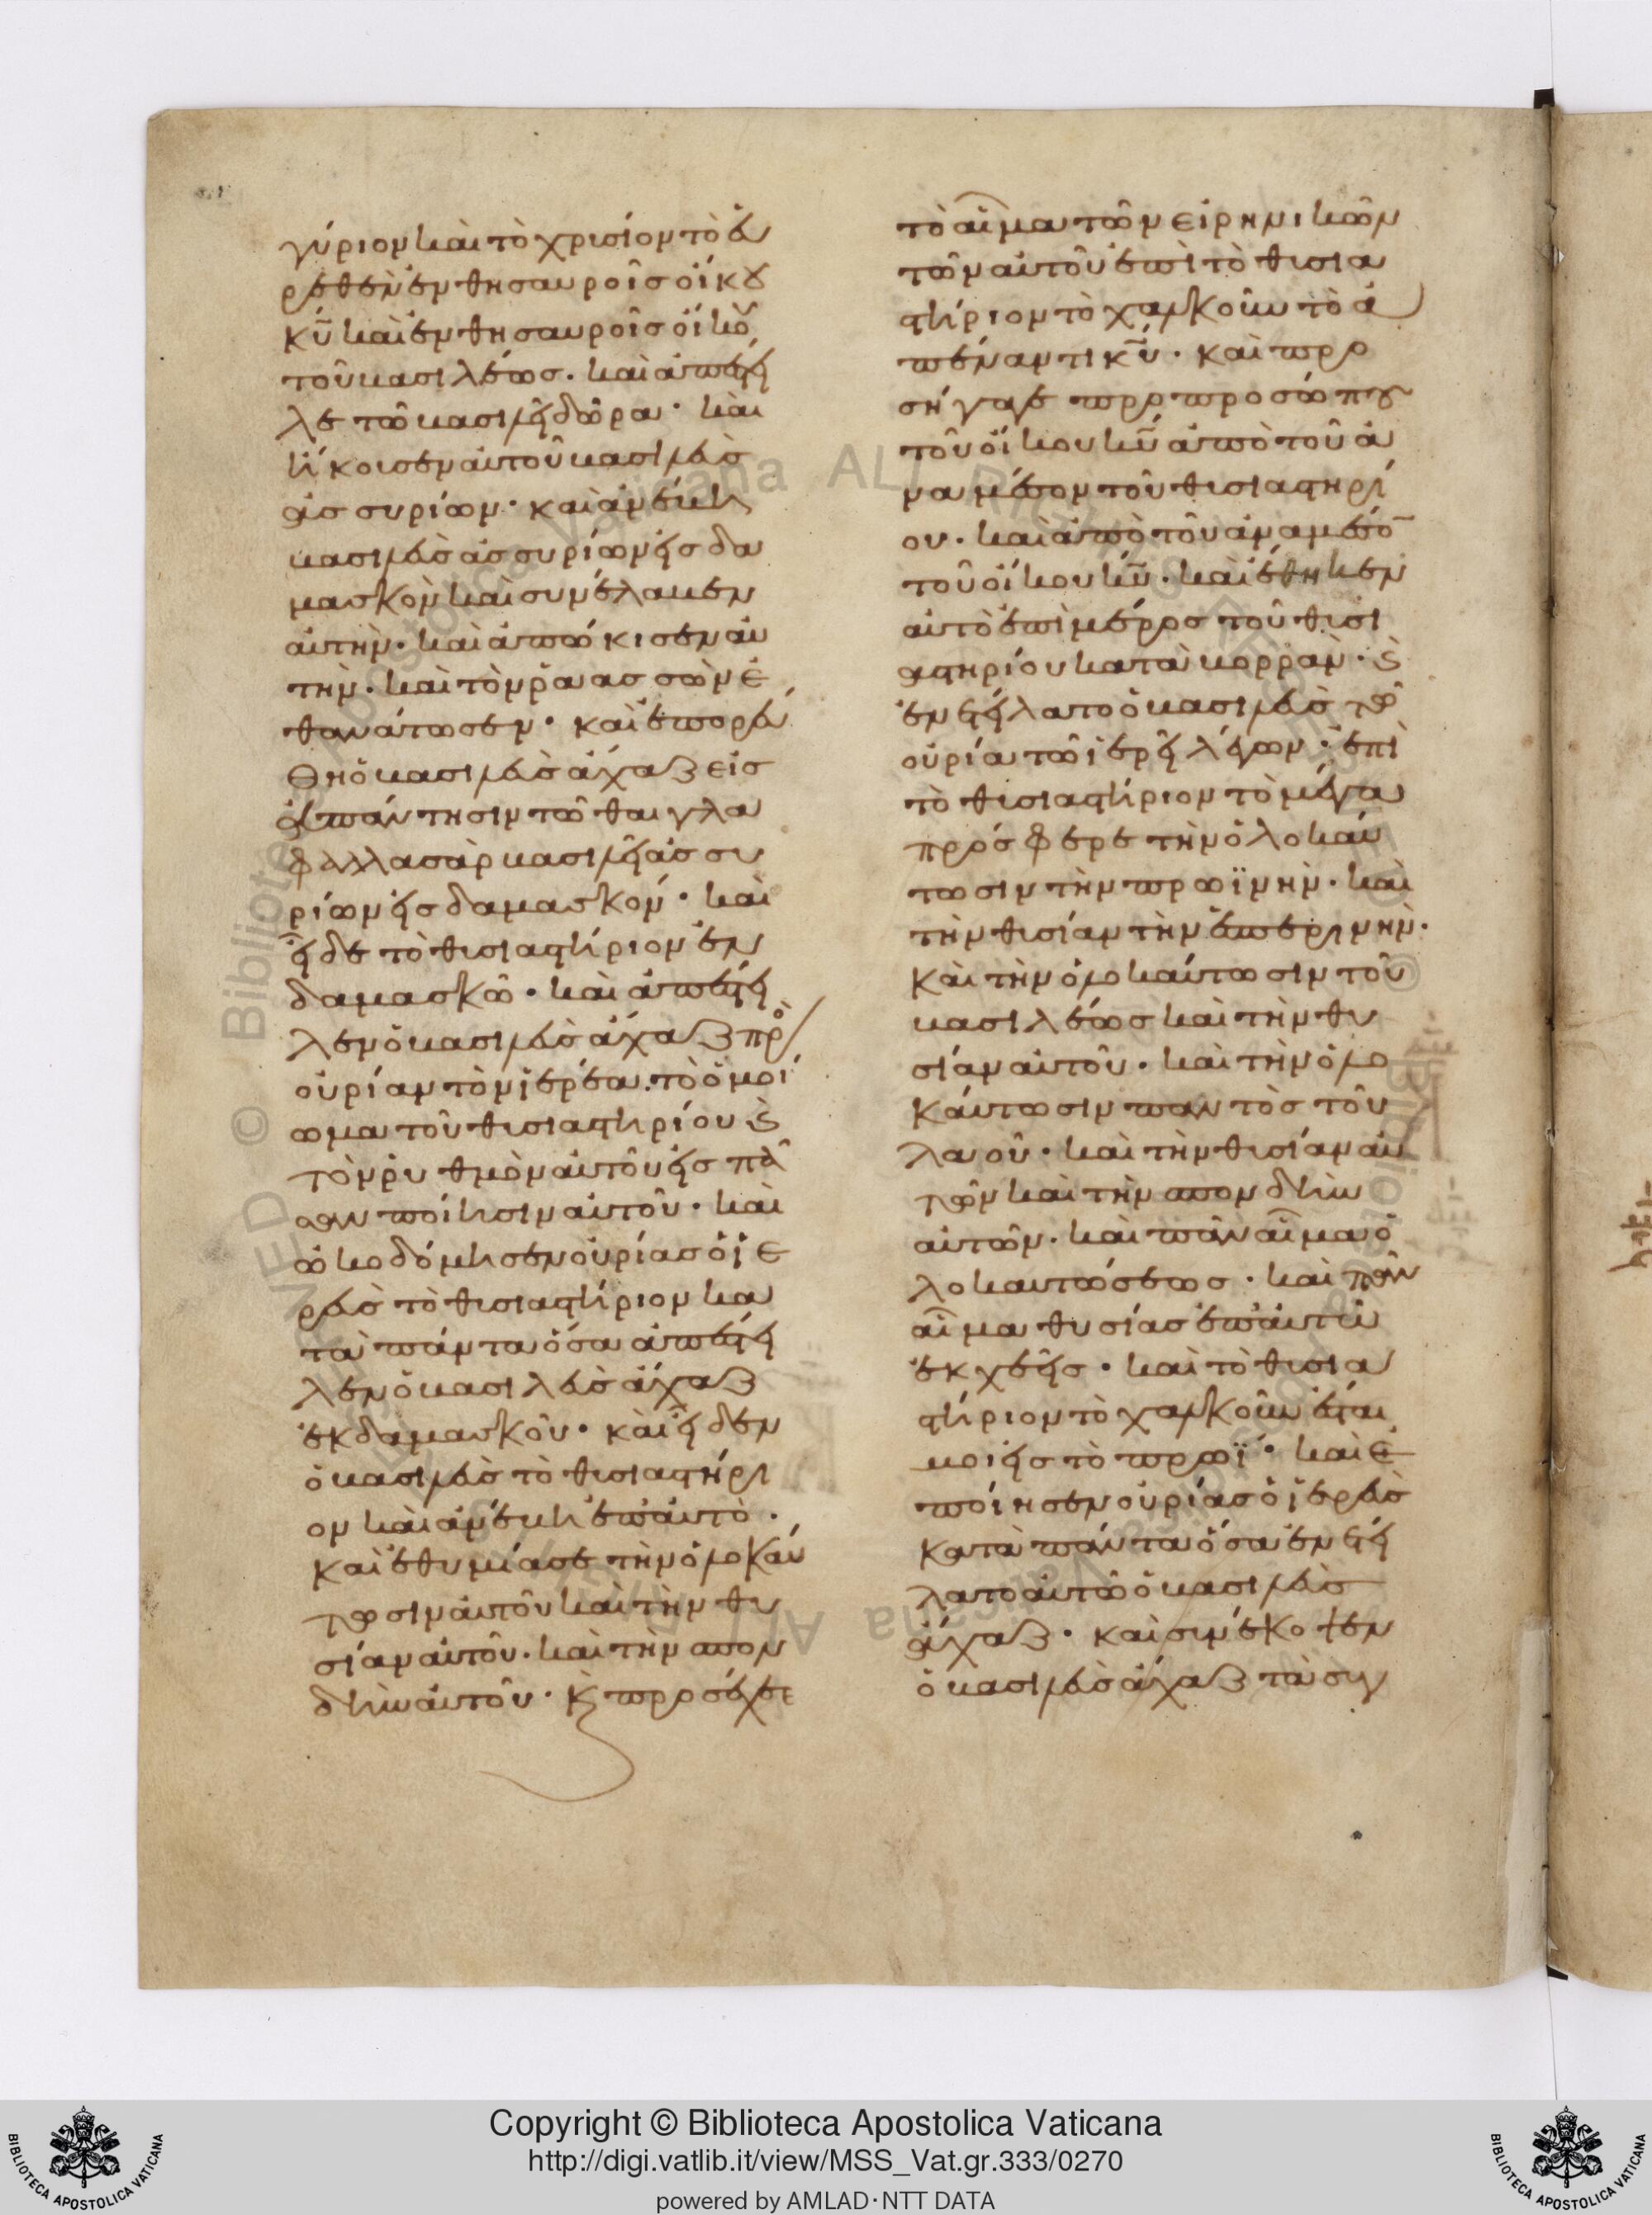 γύριον καὶ τὸ χρυσίον τὸ εὑ
ρεθὲν ἐν θησαυροῖσ οἴκου
κυ̅ καὶ ἐν θησαυροῖσ οἴκου
τοῦ βασιλέωσ. καὶ ἀπέστει
λε τῶ βασιλεῖ δῶρα· καὶ
ἤκουσεν αὐτοῦ βασιλεὺσ
ἀσσυρίων· καὶ ἀνέβη
βασιλεὺσ ἀσσυρίων εἰσ δα
μασκὸν καὶ συνέλαβεν
αὐτὴν· καὶ ἀπώκισεν αὐ
τὴν· καὶ τὸν ῥαασσὼν ἐ
θανάτωσεν· καὶ ἐπορεύ
θη ὁ βασιλεὺσ ἄχαζ εἰσ
ἀπάντησιν τῶ θαγλα
φαλλασὰρ βασιλεῖ ἀσσυ
ρίων εἰσ δαμασκόν· καὶ
εἶδε τὸ θυσιαστήριον ἐν
δαμασκῶ· καὶ ἀπέστει
λεν ὁ βασιλεὺσ ἄχαζ πρὸ
οὐρίαν τὸν ἱερέα. τὸ ὁμοί
ωμα τοῦ θυσιαστηρίου κ
τὸν ῥυθμὸν αὐτοῦ εἰσ πᾶ
σαν ποίησιν αὐτοῦ· καὶ
ὠκοδόμησεν οὐρίασ ὁ ἱε
ρεὺσ τὸ θυσιαστήριον κα
τὰ πάντα ὅσα ἀπέστει
λεν ὁ βασιλεὺσ ἄχαζ
ἐκ δαμασκοῦ· καὶ εἶδεν
ὁ βασιλεὺσ τὸ θυσιαστήρι
ον καὶ ἀνέβη ἐπ αὐτὸ·
καὶ ἐθυμίασε τὴν ὁλοκαύ
τωσιν αὐτοῦ καὶ τὴν θυ
σίαν αὐτοῦ· καὶ τὴν σπον
δὴν αὐτοῦ· κ προσέχεε
τὸ αἷμα τῶν εἰρηνικῶν
τῶν αὐτοῦ ἐπὶ τὸ θυσια
στήριον τὸ χαλκοῦν τὸ ἀ
πέναντι κυ̅· καὶ προ
σήγαγε προ προσώπου
τοῦ οἴκου κυ̅ ἀπὸ τοῦ ἀ
ναμέσον τοῦ θυσιαστηρί
ου· καὶ ἀπὸ τοῦ ἀναμέσο̅
τοῦ οἴκου κυ̅· καὶ ἔθηκεν
αὐτὸ ἐπὶ μέροσ τοῦ θυσι
αστηρίου κατὰ βορρὰν· κ
ἐνετείλατο ὁ βασιλεὺσ τῶ
οὐρία τῶ ἱερεῖ λέγων· ἐπὶ
τὸ θυσιαστήριον τὸ μέγα
πρόσφερε τὴν ὁλοκαύ
τωσιν τὴν πρωϊνὴν· καὶ
τὴν θυσίαν τὴν ἑσπερινὴν·
καὶ τὴν ὁλοκαύτωσιν τοῦ
βασιλέωσ καὶ τὴν θυ
σίαν αὐτοῦ· καὶ τὴν ὁλο
καύτωσιν παντὸσ τοῦ
λαοῦ· καὶ τὴν θυσίαν αὐ
τῶν καὶ τὴν σπονδὴν
αὐτῶν· καὶ πᾶν αἷμα ὁ
λοκαυτώσεωσ· καὶ πᾶν
αἷμα θυσίασ ἐπ αὐτῶ
ἐκχεεῖσ· καὶ τὸ θυσια
στήριον τὸ χαλκοῦν ἔσται
μοι εἰσ τὸ πρωΐ· καὶ ἐ
ποίησεν οὐρίασ ὁ ἱερεὺσ
κατὰ πάντα ὅσα ἐνετεί
λατο αὐτῶ ὁ βασιλεὺσ
ἄχαζ· καὶ συνέκοψεν
ὁ βασιλεὺσ ἄχαζ τὰ συγ
Copyright © Biblioteca Apostolica Vaticana
http://digi.vatlib.it/view/MSS_Vat.gr.333/0270
powered by AMLAD·NTT DATA
BIBLIOTECA APOSTOLICA VATICANA
BIBLIOTECA APOSTOLICA VATICANA